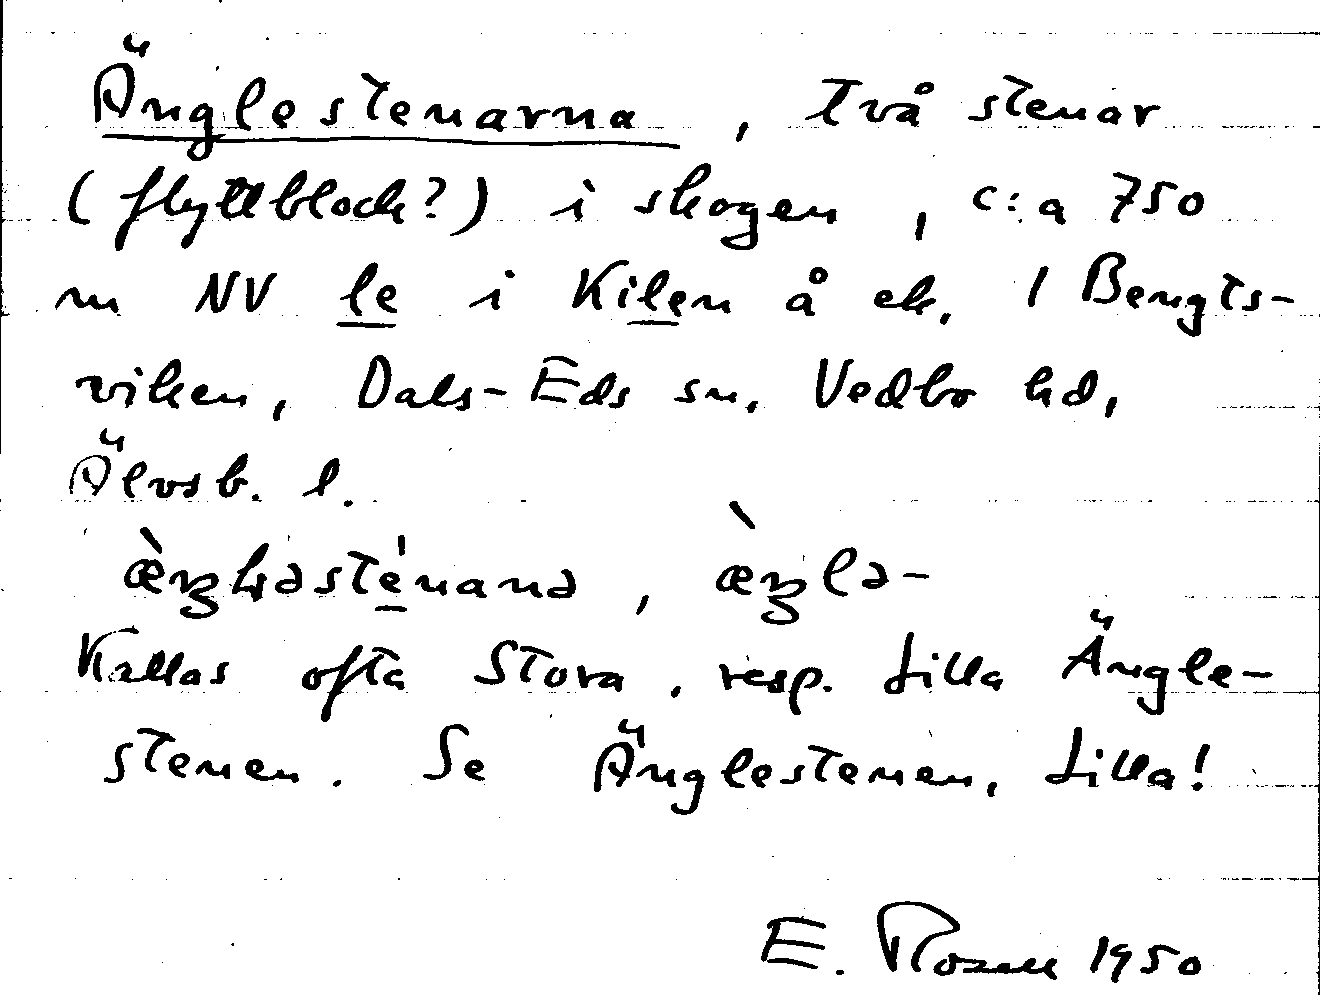 Änglestenarna, två stenar
(flyttblock?) i skogen, c:a 750
m NV le i Kilen å ek. 1 Bengts-
viken, Dals-Eds sn. Vedbo hd,
Älvsb. l.
æ̀ŋləsté̱nanə, æ̀ŋlə-
Kallas ofta Stora, resp. Lilla Ängle-
stenen. Se Änglestenen, Lilla!
E. Rosell 1950